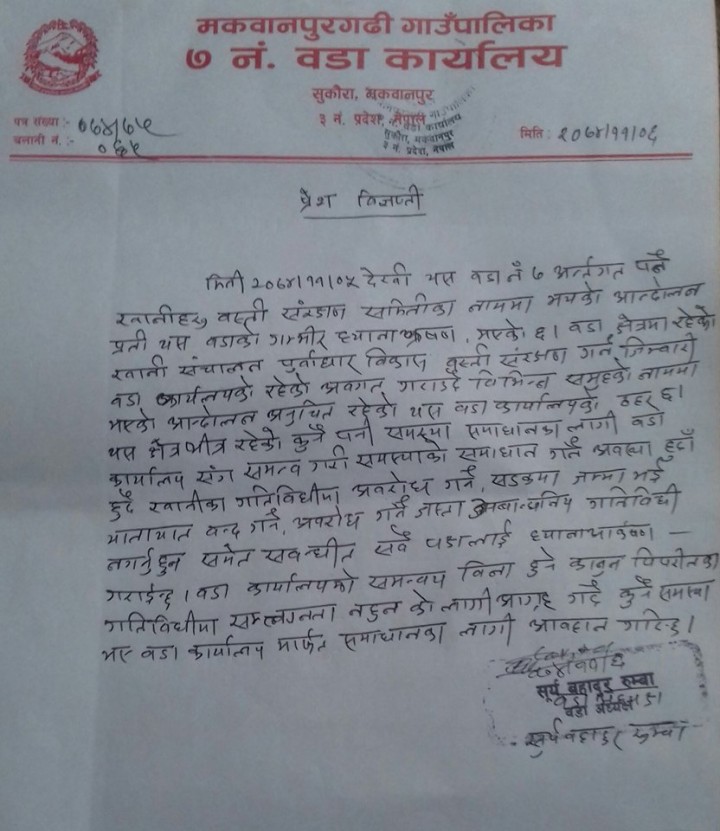 मकवानपुरगढी गाउँपालिका
७ नं. वडा कार्यालय
सुकौरा, मकवानपुर
३ नं. प्रदेश, नेपाल
पत्र संख्या :- ०७४/७५
चलानी नं. :-
मिति : २०७४/११/०६
प्रेश विज्ञप्ती
मिती २०७४/११/०५ देखी यस वडा नं ७ अर्न्तगत पर्ने
खानीहरु वस्ती संरक्षण समितीका नाममा भएको आन्दोलन
प्रती यस वडाको गम्भीर ध्यानाकृषण भएको छ। वडा क्षेत्रमा रहेको
खानी संचालन पुर्वाधार विकास वस्ती संरक्षण गर्ने जिम्वारी
वडा कार्यलयको रहेको अवगत गराउदै विभिन्न समुहको नाममा
भएको आन्दोलन अनुचित रहेको यस वडा कार्यालयको ठहर छ।
यस क्षेत्रभीत्र रहेको कुनै पनी समस्या समाधानका लागी वडा
कार्यालय संग समन्व गरी समस्याको समाधान गर्ने अवस्था हुदाँ
हुदै खानीका गतिविधीमा अवरोध गर्ने, सडकमा जम्मा भई
यातायात वन्द गर्ने, अवरोध गर्ने जस्ता गतिविधी
नगर्नुहुन समेत सवन्धीत सवै पक्षलाई ध्यानाआर्कषण –
गराईन्छ। वडा कार्यालयको समन्वय विना हुने कानुन विपरीतका
गतिविधीमा सम्लग्नता नहुन को लागी आग्रह गर्दै कुनै समस्या
भए वडा कार्यालय मार्फत समाधानका लागी आवहान गरिन्छ।
सुर्य बहादुर रुम्बा
वडा अध्यक्ष
सुर्य बहादुर रुम्बा